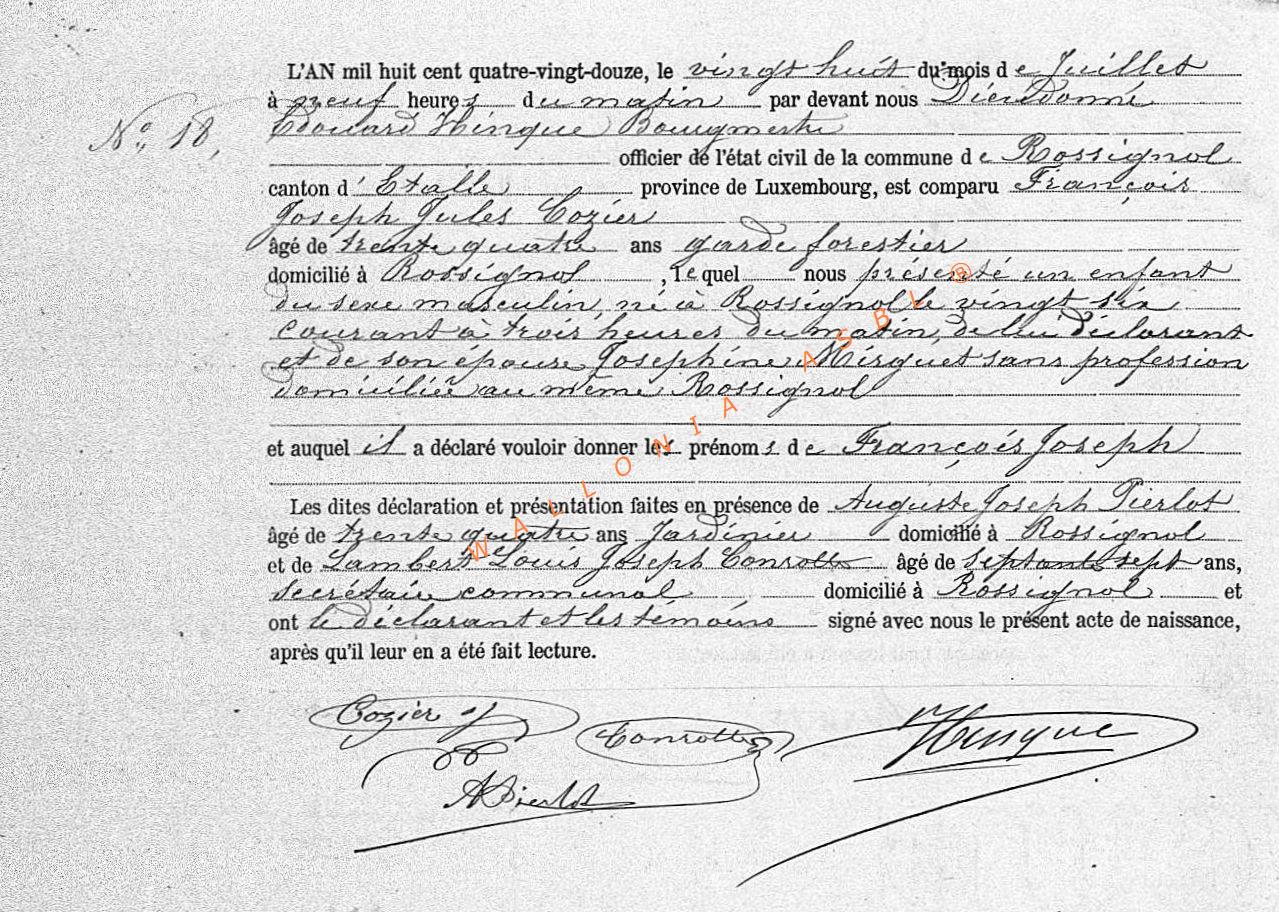 L'AN mil huit cent quatre-vingt-douze, le vingt huit du mois de Juillet
à neuf heures du matin par devant nous Dieudonné
No. 18,
Edouard Hinque Bourgmestre
officier de l'état civil de la commune de Rossignol
canton d'Etalle province de Luxembourg, est comparu François
Joseph Jules Cozier
âgé de trente quatre ans garde forestier
domicilié à Rossignol, lequel nous présenté un enfant
du sexe masculin, né à Rossignol le vingt six
courant à trois heures du matin, de lui déclarant
et de son épouse Joséphine sans profession
domiciliée au même Rossignol
et auquel il a déclaré vouloir donner les prénoms de François Joseph
Les dites déclaration et présentation faites en présence de Auguste Joseph Pierlot
âgé de trente quatre ans Jardinier domicilié à Rossignol
et de Lambert Louis Joseph Conrotte âgé de septante sept ans,
secrétaire communal domicilié à Rossignol et
ont le déclarant et les témoins signé avec nous le présent acte de naissance,
après qu'il leur en a été fait lecture.
Cozier Conrotte Hinque
A Pierlot
WALLONIA ASBL ®